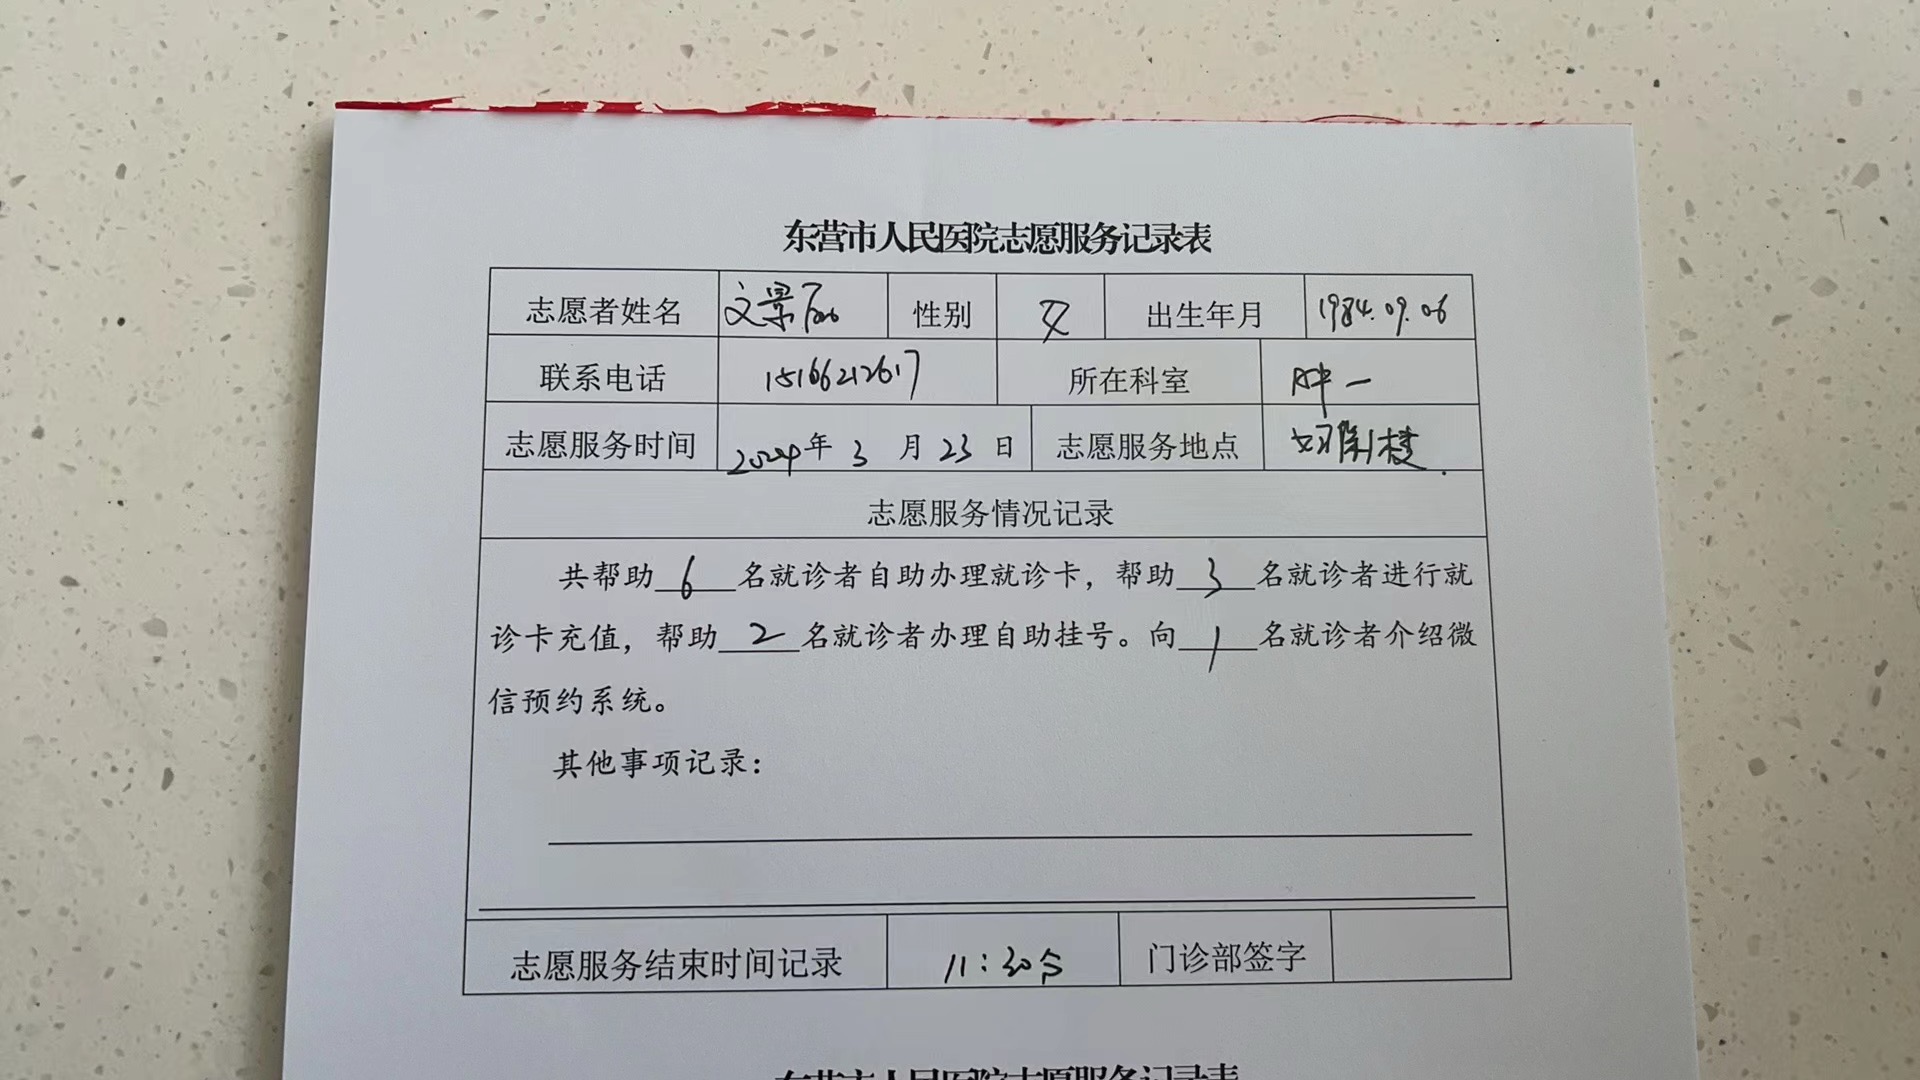 东营市人民医院志愿服务记录表
志愿者姓名 文景 性别 女 出生年月 1984.09.06
联系电话 15166212617 所在科室 肿一
志愿服务时间 2024年 3 月 23 日 志愿服务地点 楼
志愿服务情况记录
共帮助 6 名就诊者自助办理就诊卡，帮助 3 名就诊者进行就
诊卡充值，帮助 2 名就诊者办理自助挂号。向 1 名就诊者介绍微
信预约系统。
其他事项记录：
志愿服务结束时间记录 11：30分 门诊部签字
东营市人民医院志愿服务记录表